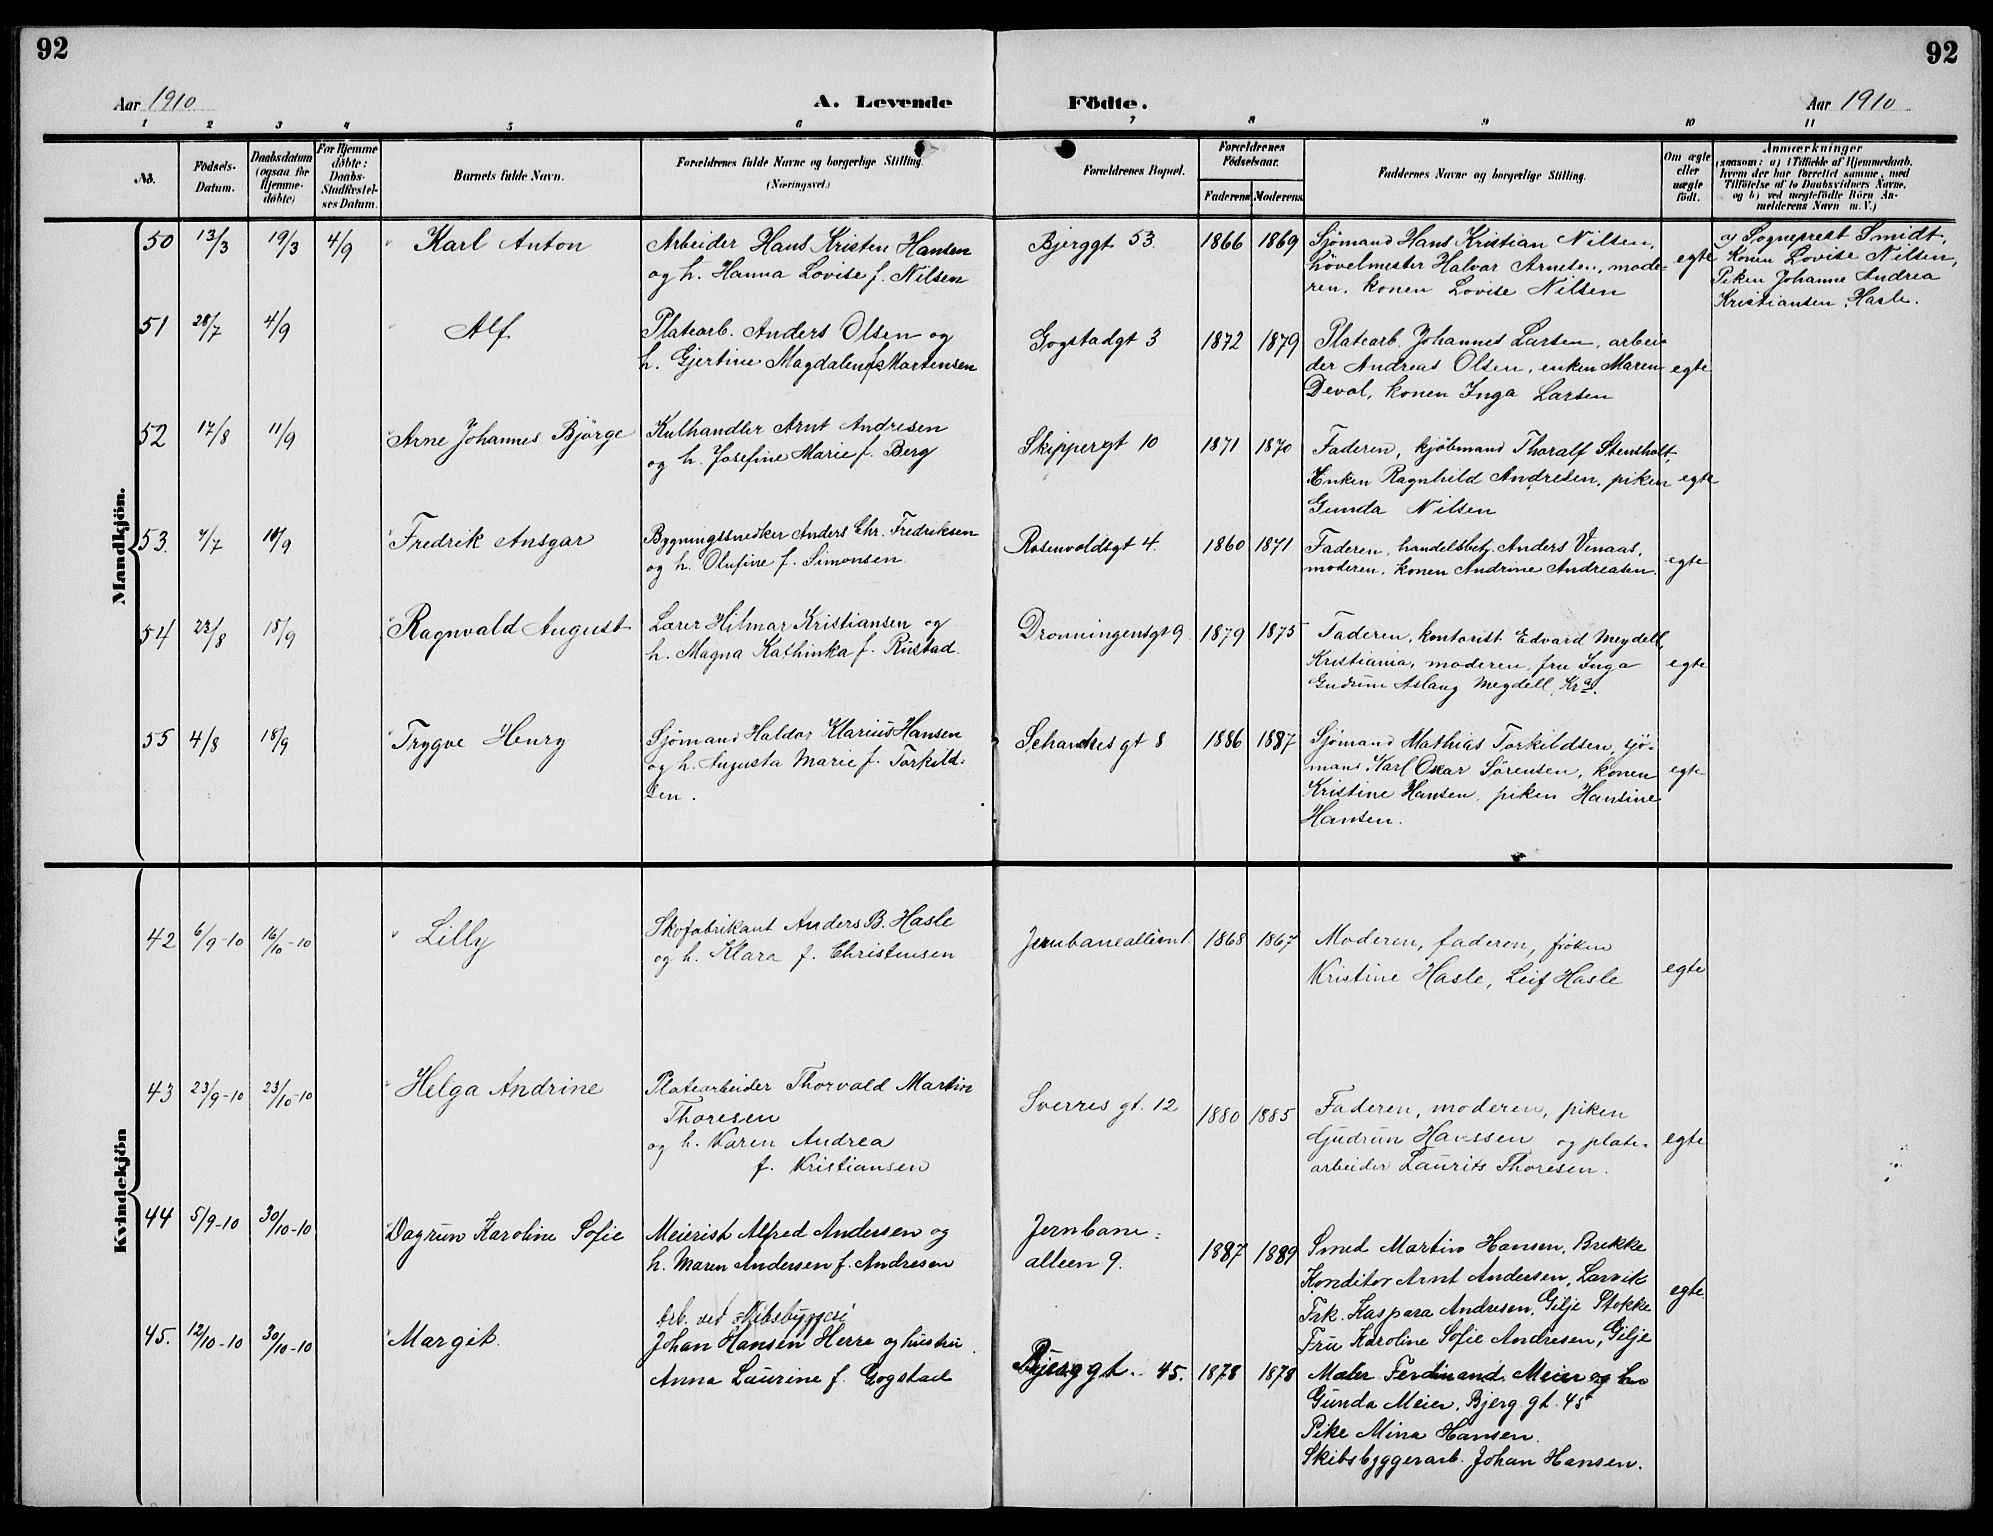 92
92
Aar 1910
A. Levende Födte.
Aar 1910
1 2 3 4 5 6 7 8 9 10 11
No.
Födsels-
Datum.
Daabsdatum
(ogsaa for
Hjemme-
döbte)
For Hjemme
döbte:
Daabs-
Stadfestel-
ses Datum.
Barnets fulde Navn.
Forældrenes fulde Navne og borgerlige Stilling.
(Næringsvei.)
Forældrenes Bopæl.
Forældrenes
Födselsaar.
Faderens Moderens
Faddernes Navne og borgerlige Stilling.
Om ægte
eller
uægte
födt.
Anmærkninger
(saasom: a) i Tilfælde af Hjemmedaab.
hvem der har forrettet samme, med
Tilföielse af to Daabsvidners Navne,
og b) ved uægtefödte Börn An-
melderens Navn m. V.)
Mandkjön.
50 13/3 19/3 4/9 Karl Anton
Arbeider Hans Kristen Hansen
og h. Hanna Lovise f. Nilsen
Bjerggt 53. 1866 1869
Sjömand Hans Kristian Nilsen,
hövelmester Halvor Arnesen, mode-
ren, konen Lovise Nilsen
egte
a) Sogneprest Smidt,
Konen Lovise Nilsen,
Piken Johanne Andrea
Kristiansen, Hasle.
51 28/7 4/9 Alf
Platearb. Anders Olsen og
h. Gjertine Magdalene f. Mortensen
Gogstadgt 3 1872 1879
Platearb. Johannes Larsen, arbei-
der Andreas Olsen, enken Maren
Devol, konen Inga Larsen
egte
52 17/8 11/9 Arne Johannes Björge
Kulhandler Arnt Andresen
og h. Josefine Marie f. Berg
Skippergt 10 1871 1870
Faderen, kjöbmand Thoralf Stensholt,
Enken Ragnhild Andresen, piken
Gunda Nilsen
egte
53. 4/7 18/9 Fredrik Ansgar
Bygningssnedker Anders Chr. Fredriksen
og h. Olufine f. Simonsen
Rosenvoldsgt 4. 1860 1871
Faderen, handelsbetj. Anders Venaas,
moderen, konen Andrine Andreasen.
egte
54 23/8 15/9 Ragnvald August
Lærer Hilmar Kristiansen og
h. Magna Kathinka f. Rustad.
Dronningensgt 9 1879 1875
Faderen, kontorist Edvard Meydell,
Kristiania, moderen, fru Inga
Gudrun Aslaug Meydell, Kra.
egte
55 4/8 18/9 Trygve Henry
Sjömand Haldor Klarius Hansen
og h. Augusta Marie f. Torkild-
sen.
Schanches gt 8 1886 1887
Sjömand Mathias Torkildsen, sjö-
mand Karl Oscar Sörensen, konen
Kristine Hansen, piken Hansine
Hansen.
egte
Kvindekjön
42 6/9-10 16/10-10 Lilly
Skofabrikant Anders B. Hasle
og h. Klara f. Christensen
Jernbanealleen 1. 1868 1867
Moderen, faderen, fröken
Kristine Hasle, Leif Hasle
egte
43 23/9-10 23/10-10 Helga Andrine
Platearbeider Thorvald Martin
Thoresen
og h. Karen Andrea
f. Kristiansen
Sverres gt. 12 1880 1885
Faderen, moderen, piken
Gudrun Hanssen og plate-
arbeider Laurits Thoresen.
egte
44 5/9-10 30/10-10 Dagrun Karoline Sofie
Meierist Alfred Andersen og
h. Maren Andersen f. Andresen
Jernbane-
alleen 9. 1887 1889
Smed Martin Hansen, Brekke
Konditor Arnt Andersen, Larvik
Frk. Kaspara Andresen, Gilje Stokke
Fru Karoline Sofie Andresen, Gilje
egte
45. 12/10-10 30/10-10 Margit.
Arb. ved skibsbyggeri
Johan Hansen Herre og hustru
Anna Laurine f. Gogstad
Bjerggt. 45. 1878 1878
Maler Ferdinand Meier og hu
Gunda Meier, Bjerg gt. 45
Pike Mina Hansen.
Skibsbyggerarb. Johan Hansen.